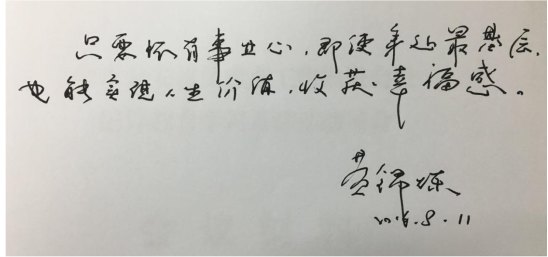 只要怀有事业心，即使身处最基层，
也能实现人生价值，收获幸福感。
2016.8.11